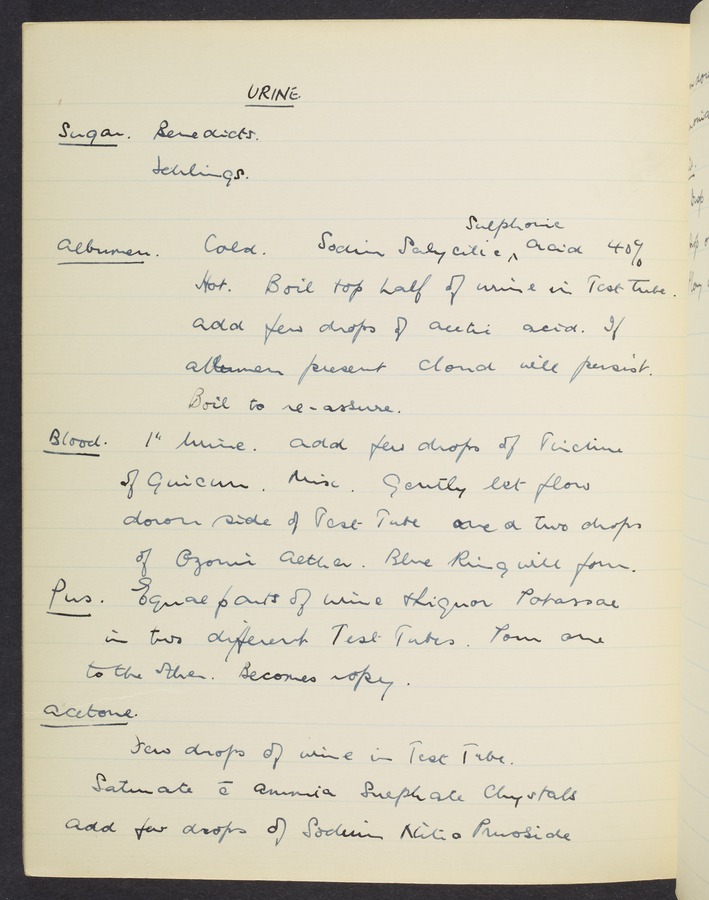 URINE.
Sugar. Benedicts.
Fehlings.
Sulphonic
Albumen. Cold. Sodium Salycilic ^ Acid 40%
Hot. Boil top half of urine in Test Tube.
Add few drops of acetic acid. If
albumen present cloud will persist.
Boil to re-assure.
Blood. 1" Urine. Add few drops of Tincture
of Guicum. Mix. Gently let flow
down side of Test Tube one or two drops
of Ozonic Aether. Blue Ring will form.
Pus. Equal parts of urine & Liquor Potassae
in two different Test Tubes. Pour one
to the other. Becomes ropey.
Acetone.
Few drops of urine in Test Tube.
Saturate c̄ Ammonia Sulphate Chrystals
Add few drops of Sodium Nitro Prusside